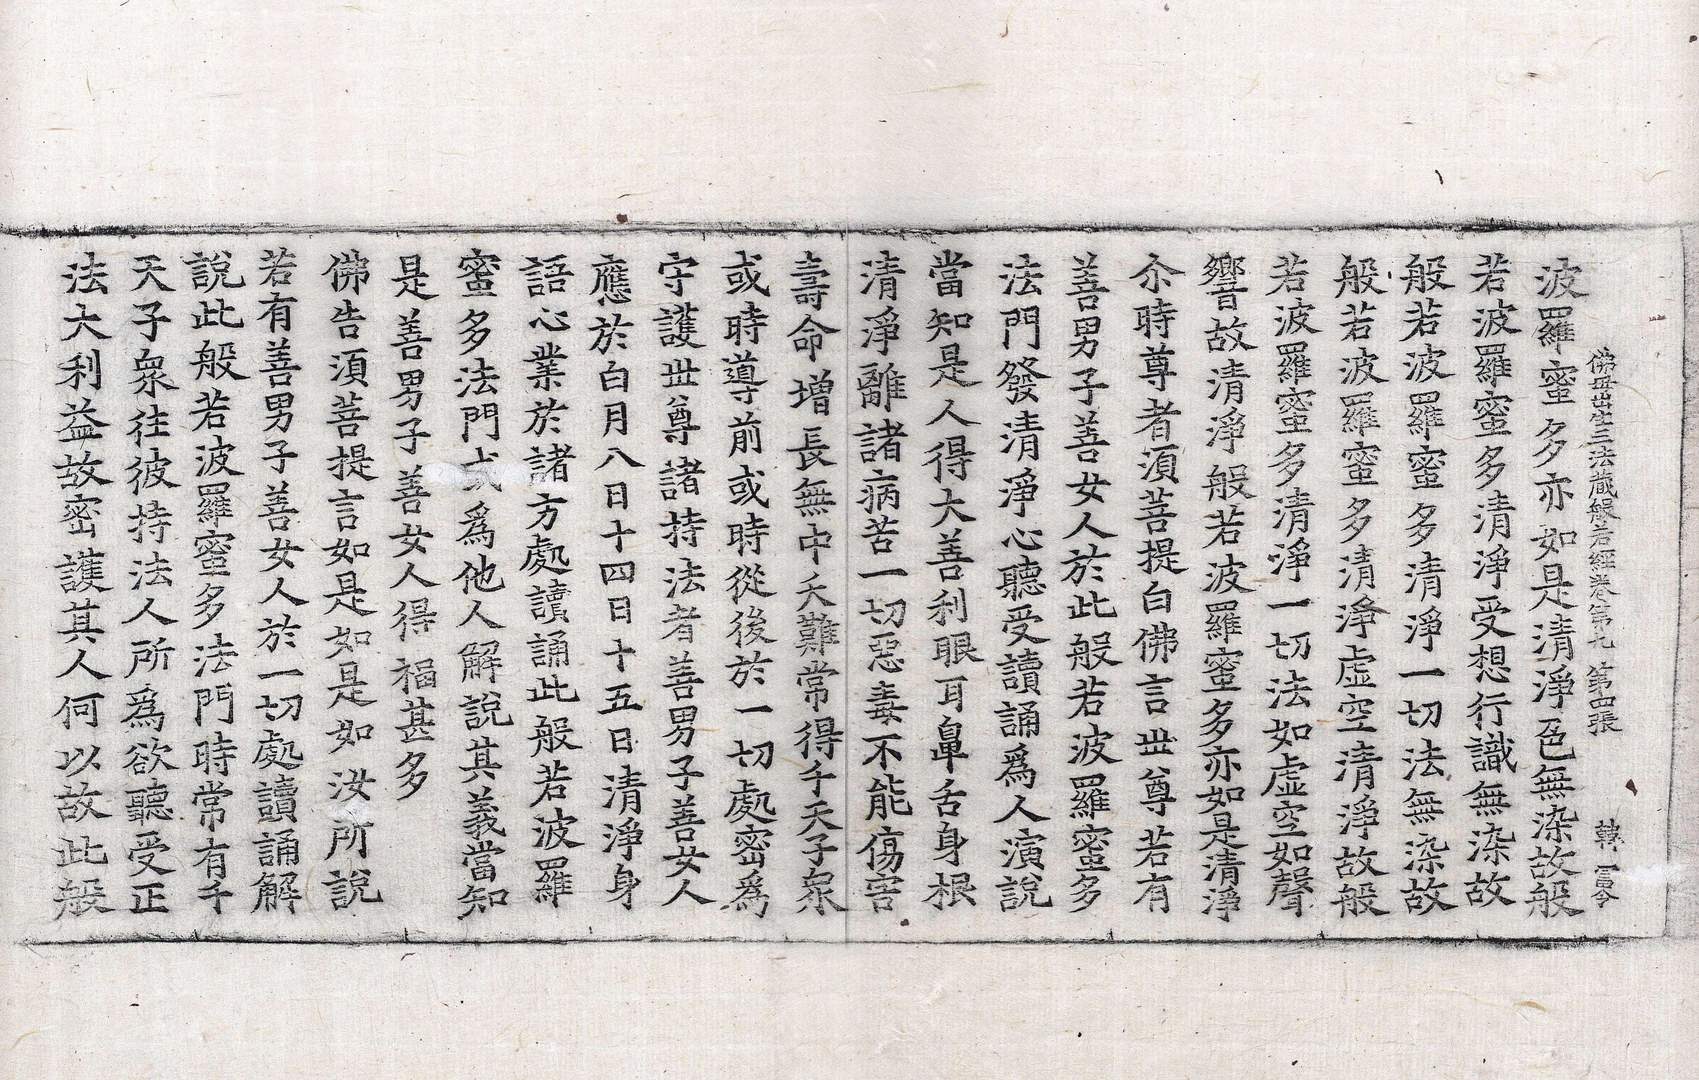 佛母出生三法藏般若經卷第九 第四張 韓
波羅蜜多亦如是清淨色無染故般
若波羅蜜多清淨受想行識無染故
般若波羅蜜多清淨一切法無染故
般若波羅蜜多清淨虛空清淨故般
若波羅蜜多清淨一切法如虛空如聲
響故清淨般若波羅蜜多亦如是清淨
尒時尊者須菩提白佛言世尊若有
善男子善女人於此般若波羅蜜多
法門發清淨心聽受讀誦爲人演說
當知是人得大善利眼耳鼻舌身根
清淨離諸病苦一切惡毒不能傷害
壽命增長無中夭難常得千天子衆
或時導前或時從後於一切處密爲
守護世尊諸持法者善男子善女人
應於白月八日十四日十五日清淨身
語心業於諸方處讀誦此般若波羅
蜜多法門或爲他人解說其義當知
是善男子善女人得福甚多
佛告須菩提言如是如是如汝所說
若有善男子善女人於一切處讀誦解
說此般若波羅蜜多法門時常有千
天子衆往彼持法人所爲欲聽受正
法大利益故密護其人何以故此般